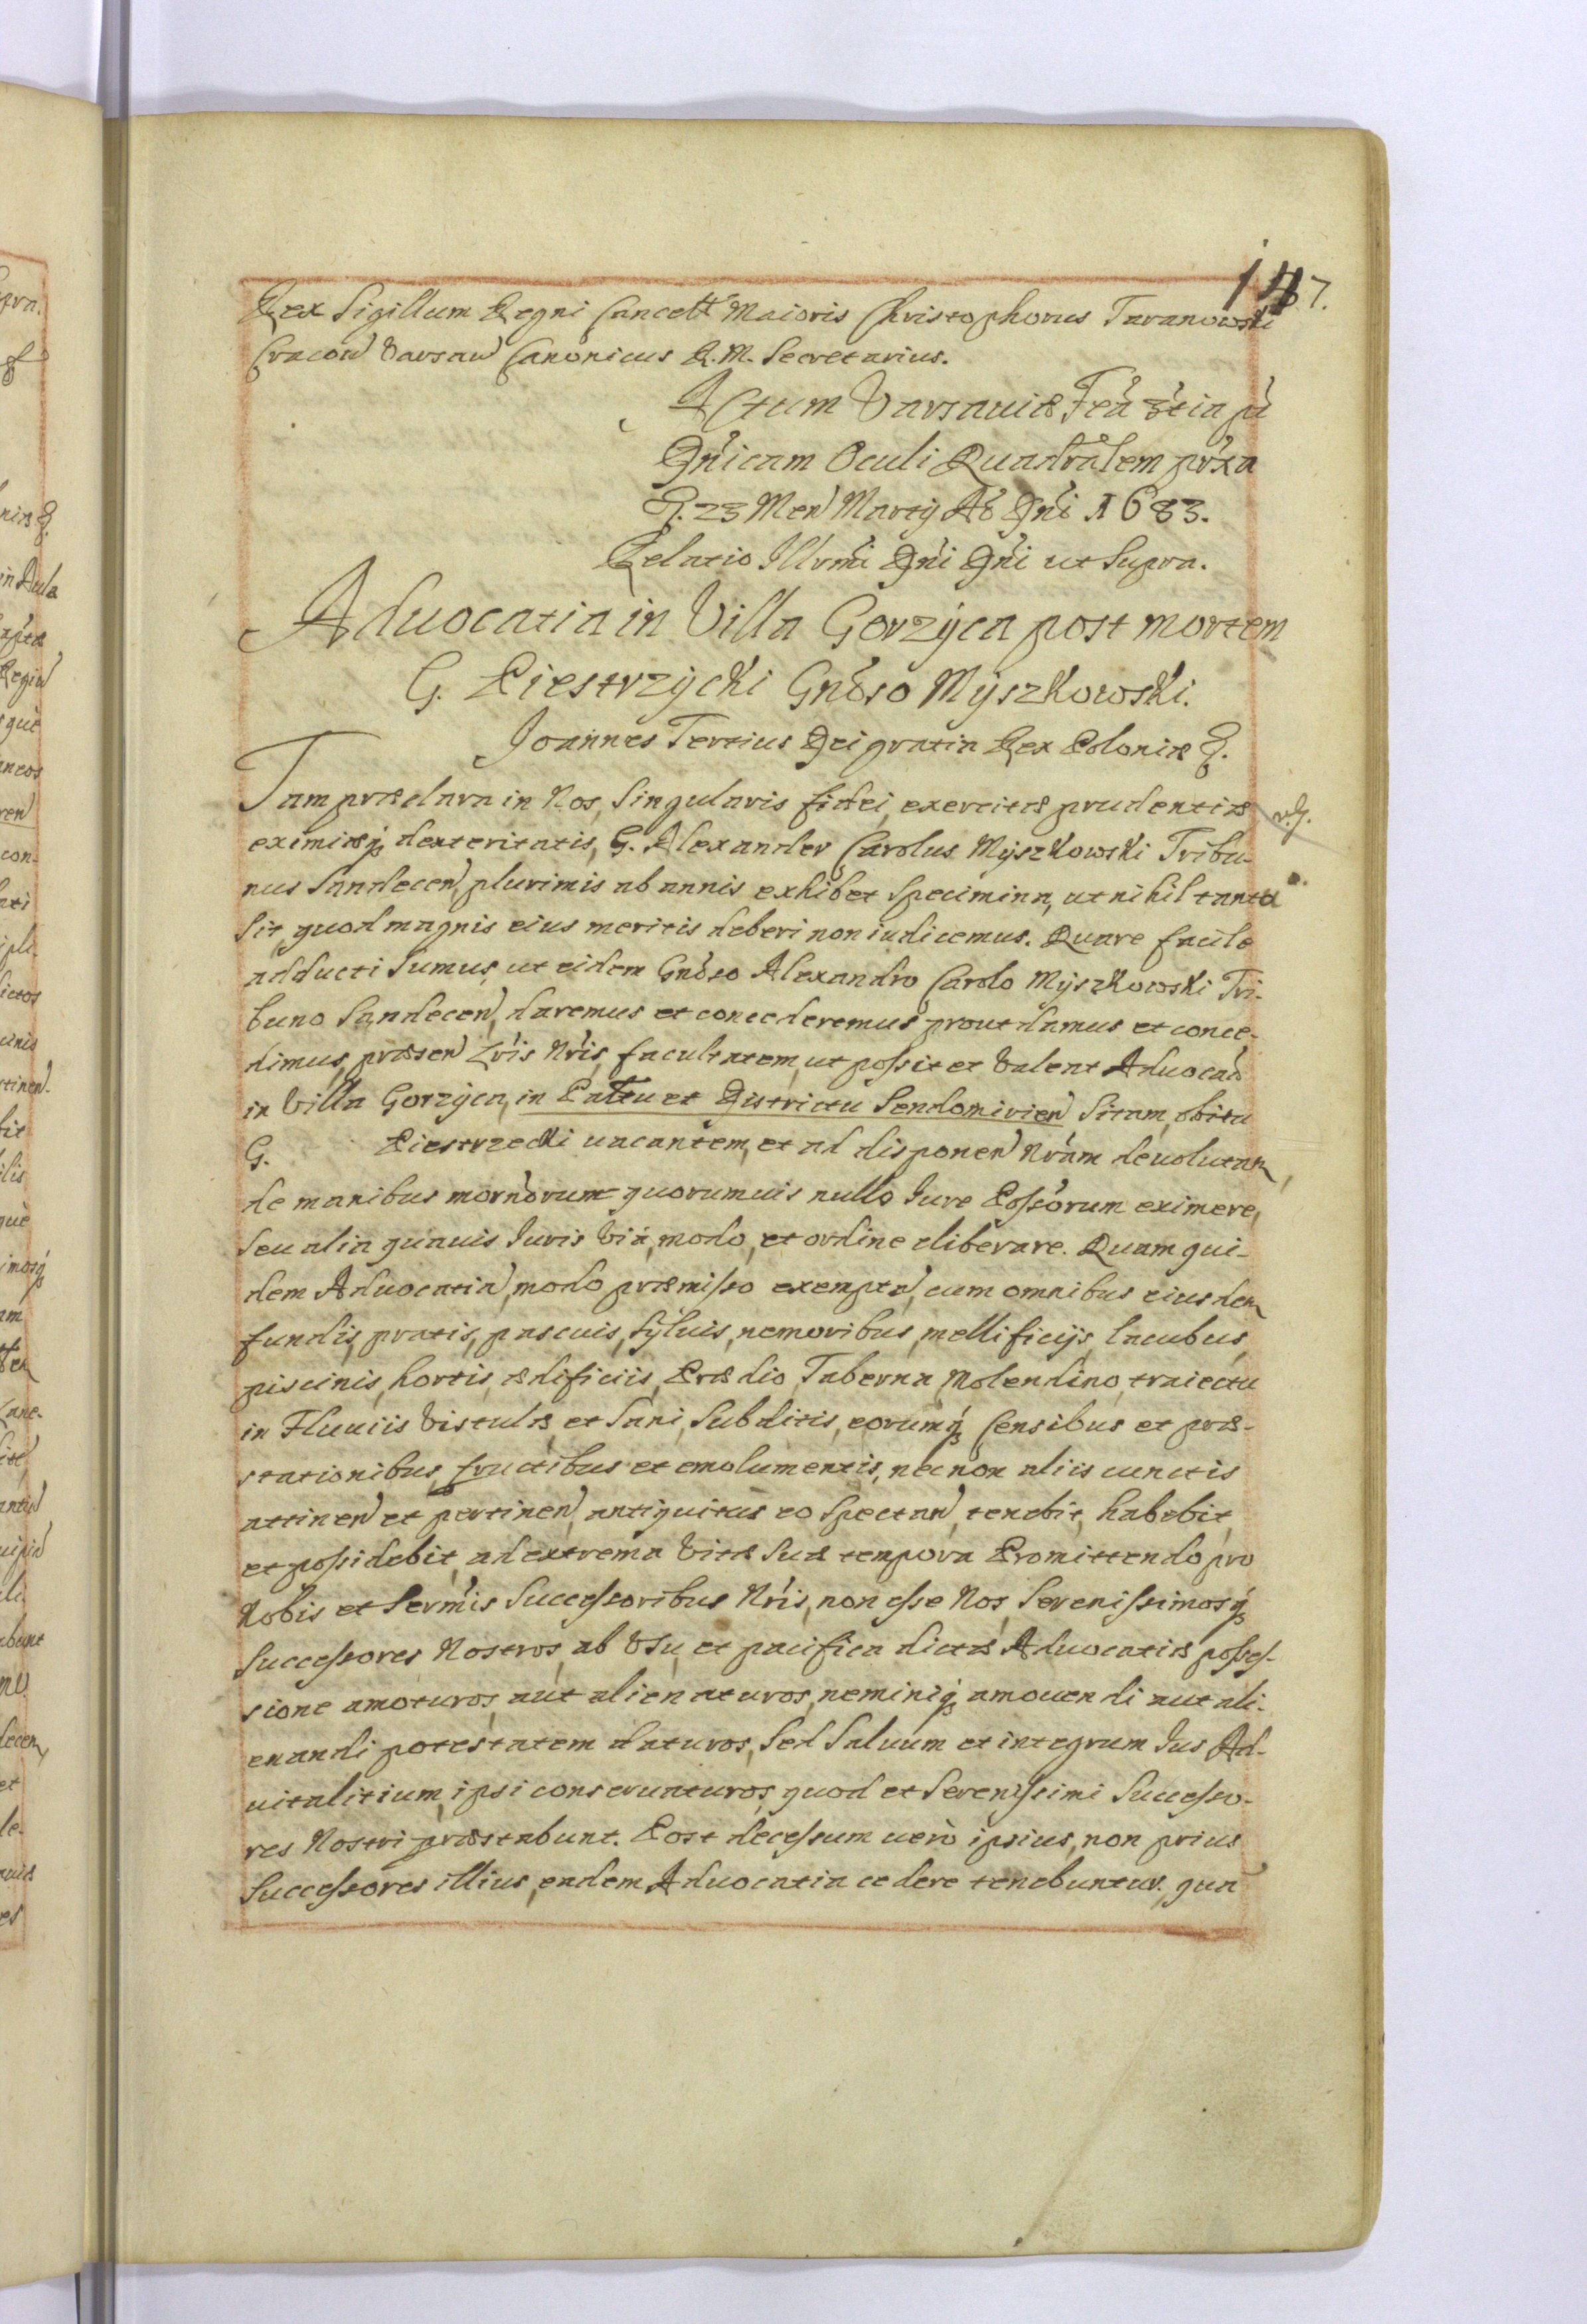 147.
Rex Sigillum Regni Cancell Maioris Christophorus Taranowski
Cracov Varsav Canonicus R. M. Secretarius.
Actum Varsaviæ Fea 3tia pa
Dnicam Oculi Quadralem proxa
D. 23 Men Martij Ao Dni 1683.
Relatio Illrmi Dni Dni ut Supra.
Aduocatia in Villa Gorzyca post mortem
G. Piestrzycki Gnoso Myszkowski.
Joannes Tertius Dei gratia Rex Poloniæ &.
Tam præclara in Nos, Singularis fidei, exercitæ prudentiæ
eximiæq dexteritatis, G. Alexander Carolus Myszkowski Tribu-
nus Sandecen, plurimis ab annis exhibet Specimina, ut nihil tanta
Sit, quod magnis eius meritis deberi non iudicemus. Quare facile
adducti Sumus, ut eidem Gnoso Alexandro Carolo Myszkowski Tri-
buno Sandecen, daremus et concederemus prout damus et conce-
dimus, præsen Lris Nris, facultatem, ut possit et Valeat Aduocao
in Villa Gorzyca, in Pattu et Districtu Sendomirien, Sitam, obitu
G. Piestrzecki uacantem, et ad disponen Nram deuolutam
de manibus mornorum quorumuis nullo Iure Possorum eximere,
Seu alia quauis Iuris Viá, modo, et ordine eliberare. Quam qui-
dem Aduocatia, modo præmisso exempta, cum omnibus eiusdem
fundis, pratis, pascuis, Syluis, nemoribus, mellificijs, lacubus,
piscinis, hortis, ædificiis, Prædio, Taberna, Molendino, traiectu
in Fluuiis Vistulæ, et Sani, Subditis, eorumq Censibus et præ-
stationibus, fructibus et emolumentis, nec non aliis cunctis
attinen et pertinen, antiquitus eo Spectan, tenebit, habebit,
et possidebit, ad extrema Vitæ Suæ tempora Promittendo pro
Nobis et Sermis Successoribus Nris, non esse Nos, Serenissimosq
Successores Nostros, ab Vsu, et pacifica dictæ Aduocatiæ posses-
sione amoturos, aut alienaturos, neminiq amouendi aut ali-
enandi potestatem daturos, Sed Saluum et integrum Ius Ad-
uitalitium, ipsi conseruaturos, quod et Serenissimi Successo-
res Nostri præstabunt. Post decessum uerò ipsius, non prius
Successores illius, eadem Aduocatia cedere tenebuntur, qua